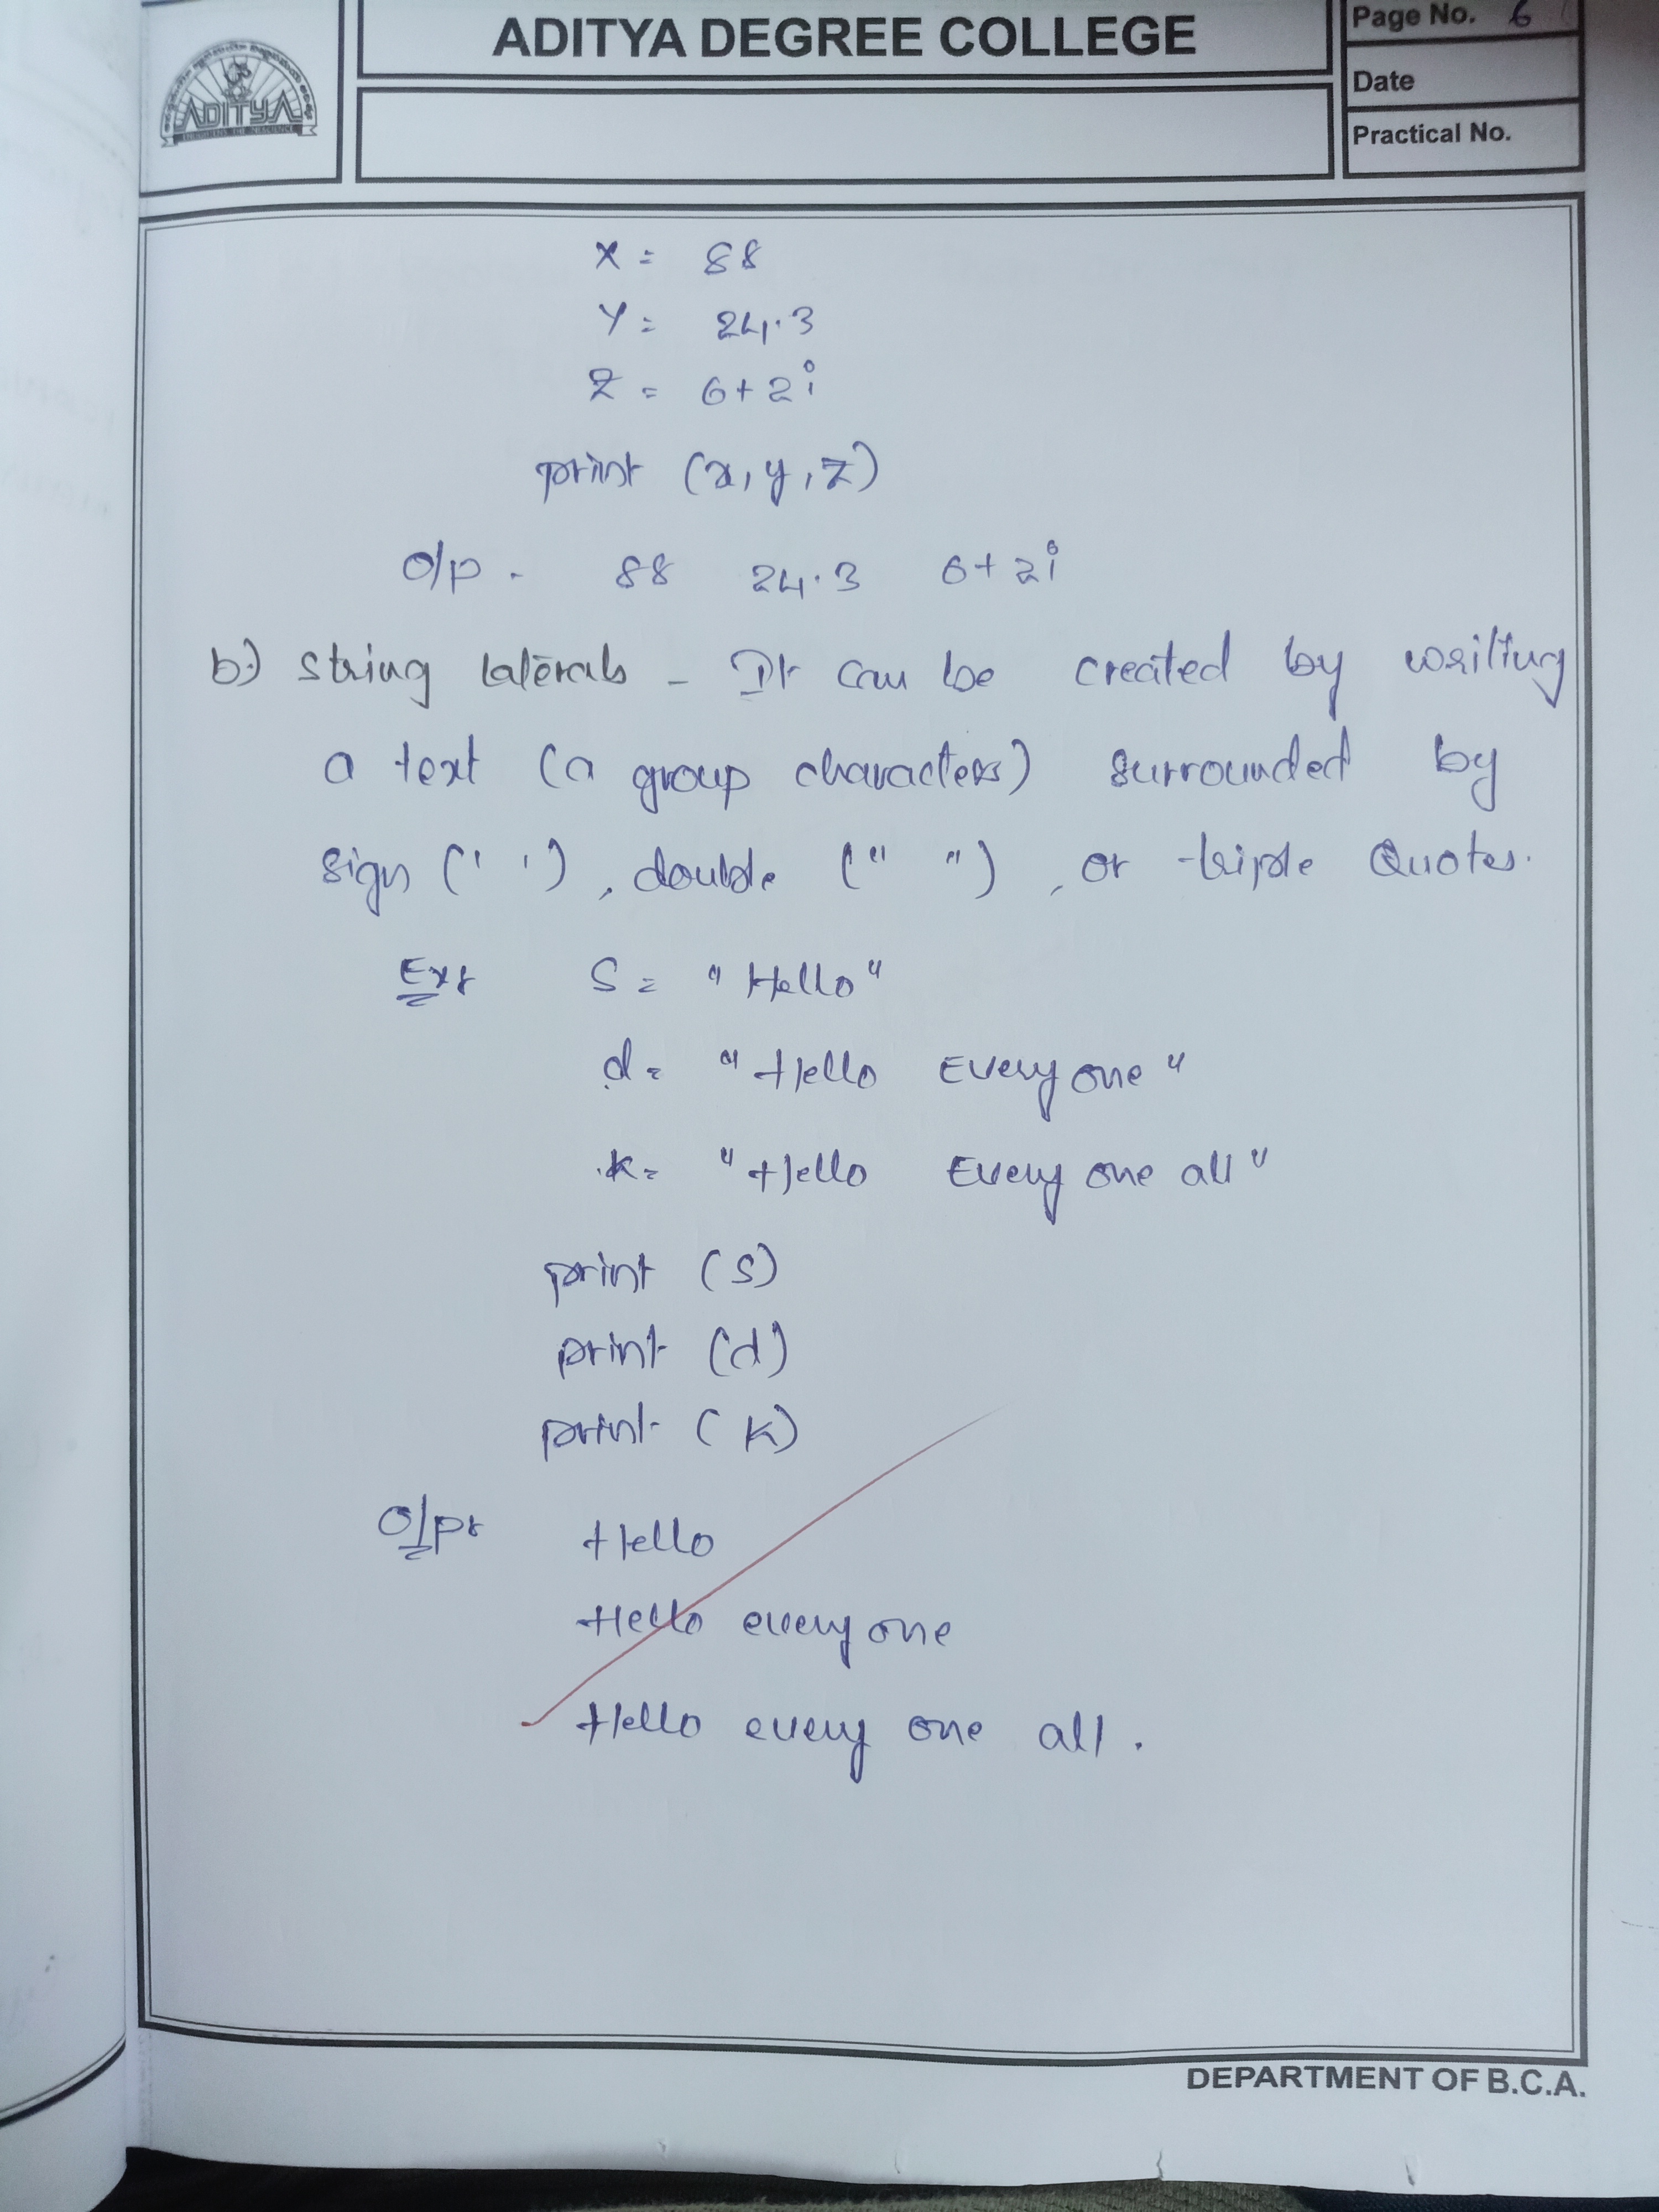 ADITYA DEGREE COLLEGE
Page No. 6
Date
Practical No.
ADITYA
X = 88
Y = 24.3
Z = 6+2i
print (x,y,z)
O/p - 88 24.3 6+2i
b.) string laterals - It can be created by writing
a text (a group characters) surrounded by
sign (' '), double (" "), or triple Quotes.
Ex: S = "Hello"
d = "Hello Every one"
k = "Hello Every one all"
print (S)
print (d)
print (K)
O/p: Hello
Hello every one
Hello every one all.
DEPARTMENT OF B.C.A.